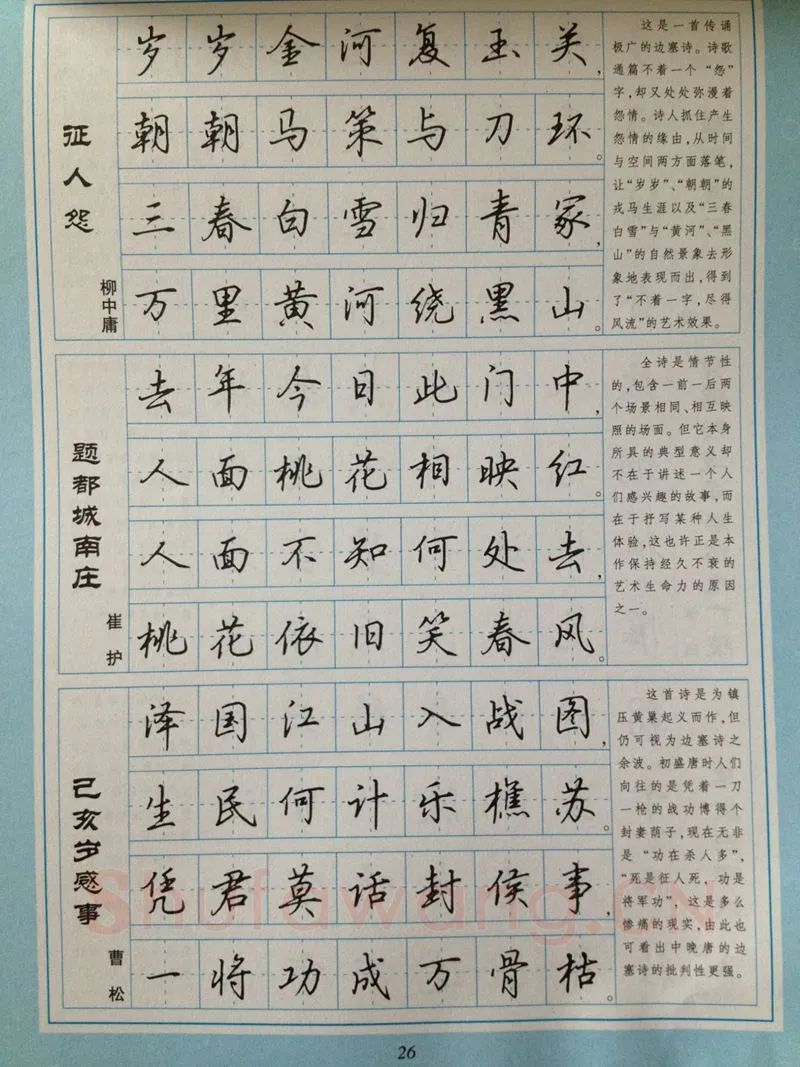 征人怨
柳中庸
岁岁金河复玉关，
朝朝马策与刀环。
三春白雪归青冢，
万里黄河绕黑山。
这是一首传诵
极广的边塞诗。诗歌
通篇不着一个“怨”
字，却又处处弥漫着
怨情。诗人抓住产生
怨情的缘由，从时间
与空间两方面落笔，
让“岁岁”、“朝朝”的
戎马生涯以及“三春
白雪”与“黄河”、“黑
山”的自然景象去形
象地表现而出，得到
了“不着一字，尽得
风流”的艺术效果。
题都城南庄
崔护
去年今日此门中，
人面桃花相映红。
人面不知何处去，
桃花依旧笑春风。
全诗是情节性
的，包含一前一后两
个场景相同、相互映
照的场面。但它本身
所具的典型意义却
不在于讲述一个人
们感兴趣的故事，而
在于抒写某种人生
体验，这也许正是本
作保持经久不衰的
艺术生命力的原因
之一。
己亥岁感事
曹松
泽国江山入战图，
生民何计乐樵苏。
凭君莫话封侯事，
一将功成万骨枯。
这首诗是为镇
压黄巢起义而作，但
仍可视为边塞诗之
余波。初盛唐时人们
向往的是凭着一刀
一枪的战功博得个
封妻荫子，现在无非
是“功在杀人多”，
“死是征人死，功是
将军功”，这是多么
惨痛的现实，由此也
可看出中晚唐的边
塞诗的批判性更强。
Shufawang.CN
26